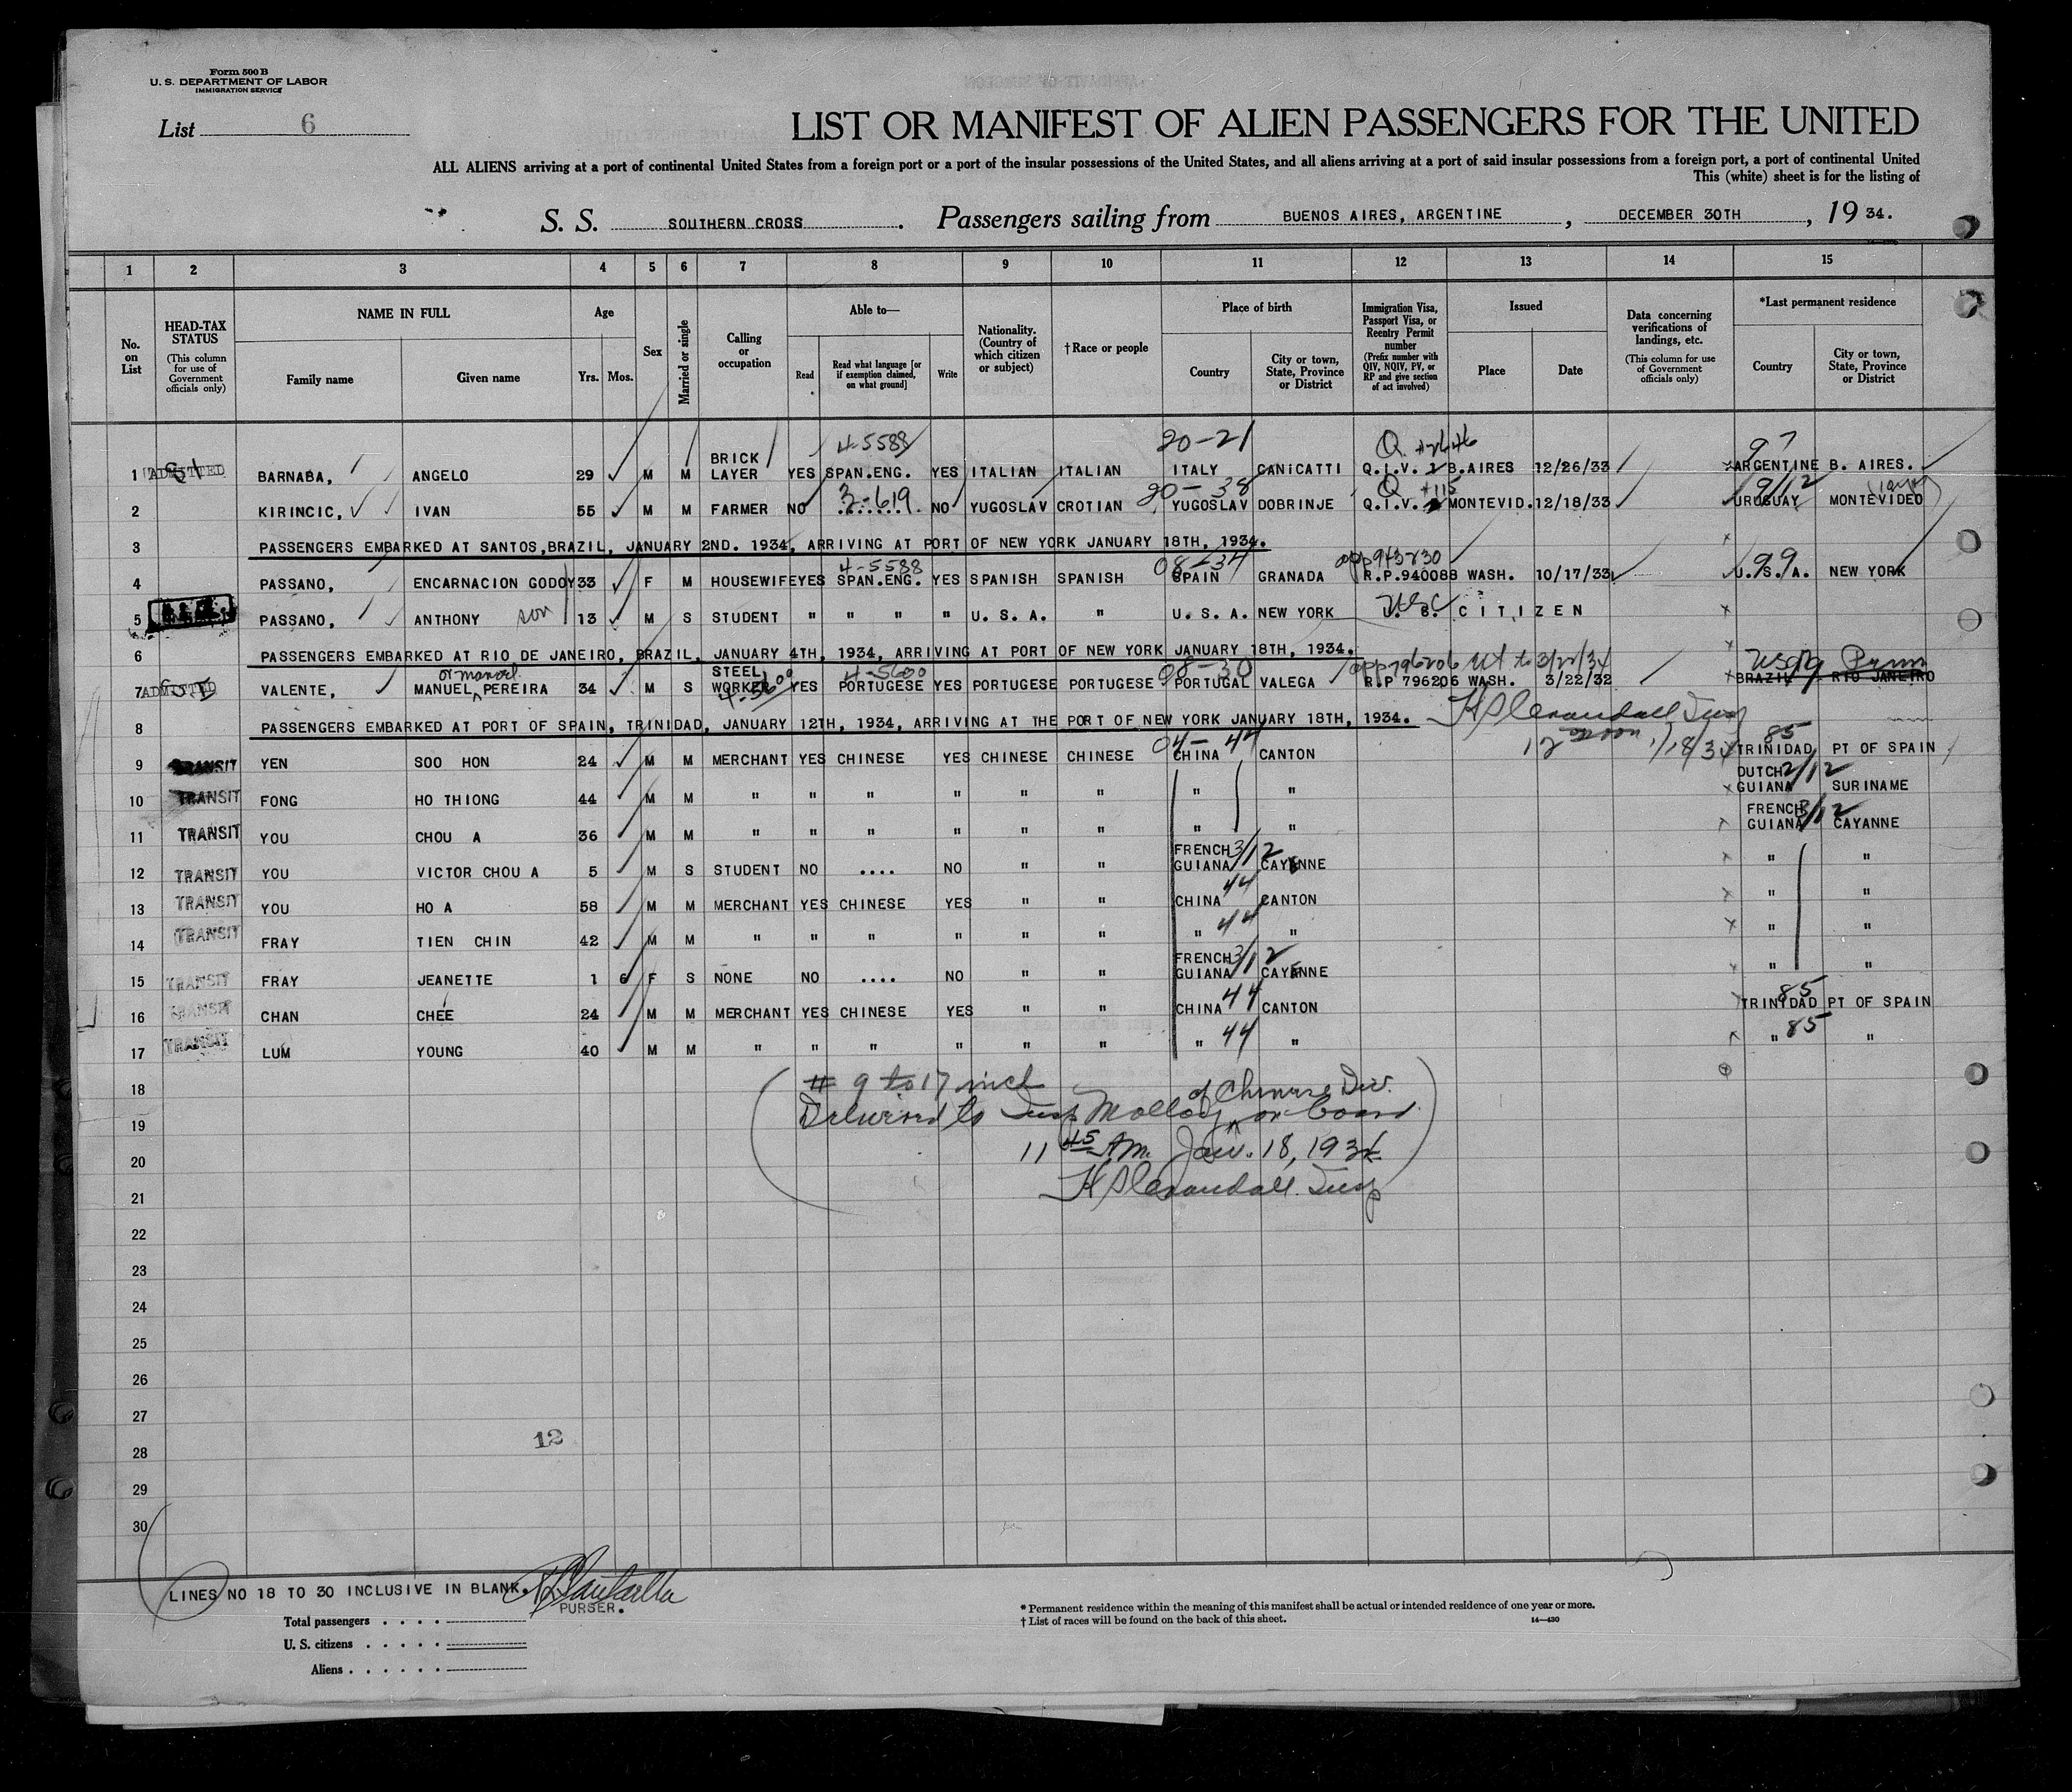 Form 500 B
U. S. DEPARTMENT OF LABOR
IMMIGRATION SERVICE
List 6
LIST OR MANIFEST OF ALIEN PASSENGERS FOR THE UNITED
ALL ALIENS arriving at a port of continental United States from a foreign port or a port of the insular possessions of the United States, and all aliens arriving at a port of said insular possessions from a foreign port, a port of continental United
This (white) sheet is for the listing of
S. S. SOUTHERN CROSS. Passengers sailing from BUENOS AIRES, ARGENTINE, DECEMBER 30TH, 19 34.
1 2 3 4 5 6 7 8 9 10 11 12 13 14 15
No. on List
HEAD-TAX STATUS (This column for use of Government officials only)
NAME IN FULL
Family name
Given name
Age
Yrs. Mos.
Sex
Married or single
Calling or occupation
Able to—
Read
Read what language [or if exemption claimed, on what ground]
Write
Nationality. (Country of which citizen or subject)
†Race or people
Place of birth
Country
City or town, State, Province or District
Immigration Visa, Passport Visa, or Reentry Permit number (Prefix number with QIV, NQIV, PV, or RP and give section of act involved)
Issued
Place
Date
Data concerning verifications of landings, etc. (This column for use of Government officials only)
*Last permanent residence
Country
City or town, State, Province or District
4-5588 20-21 Q 97
1 ADMITTED BARNABA, ANGELO 29 M M BRICK LAYER YES SPAN.ENG. YES ITALIAN ITALIAN ITALY CANICATTI Q.I.V. B.AIRES 12/26/33 ARGENTINE B. AIRES.
3-619 20-38 Q +115 9/12
2 KIRINCIC, IVAN 55 M M FARMER NO ....... NO YUGOSLAV CROTIAN YUGOSLAV DOBRINJE Q.I.V. MONTEVID. 12/18/33 URUGUAY MONTEVIDEO
3 PASSENGERS EMBARKED AT SANTOS,BRAZIL, JANUARY 2ND. 1934, ARRIVING AT PORT OF NEW YORK JANUARY 18TH, 1934.
4-5588 08-34 app 943230 99
4 PASSANO, ENCARNACION GODOY 33 F M HOUSEWIFE YES SPAN.ENG. YES SPANISH SPANISH SPAIN GRANADA R.P.940088 WASH. 10/17/33 U.S.A. NEW YORK
5 PASSANO, ANTHONY son 13 M S STUDENT " " " " U. S. A. " U. S. A. NEW YORK U. S. CITIZEN
6 PASSENGERS EMBARKED AT RIO DE JANEIRO, BRAZIL, JANUARY 4TH, 1934, ARRIVING AT PORT OF NEW YORK JANUARY 18TH, 1934.
or manoel 4-5600 4-5600 08-30 app 796206 ext to 3/22/34
7 ADMITTED VALENTE, MANUEL PEREIRA 34 M S STEEL WORKER YES PORTUGESE YES PORTUGESE PORTUGESE PORTUGAL VALEGA R.P 796206 WASH. 3/22/32 BRAZIL RIO JANEIRO
8 PASSENGERS EMBARKED AT PORT OF SPAIN, TRINIDAD, JANUARY 12TH, 1934, ARRIVING AT THE PORT OF NEW YORK JANUARY 18TH, 1934.
04-44 12 noon 1/18/34 85
9 TRANSIT YEN SOO HON 24 M M MERCHANT YES CHINESE YES CHINESE CHINESE CHINA CANTON TRINIDAD PT OF SPAIN
10 TRANSIT FONG HO THIONG 44 M M " " " " " " " " DUTCH GUIANA 2/12 SURINAME
11 TRANSIT YOU CHOU A 36 M M " " " " " " " " FRENCH GUIANA 3/12 CAYANNE
12 TRANSIT YOU VICTOR CHOU A 5 M S STUDENT NO .... NO " " FRENCH GUIANA 3/12 CAYENNE " "
13 TRANSIT YOU HO A 58 M M MERCHANT YES CHINESE YES " " CHINA 44 CANTON " "
14 TRANSIT FRAY TIEN CHIN 42 M M " " " " " " " 44 " " "
15 TRANSIT FRAY JEANETTE 1 6 F S NONE NO .... NO " " FRENCH GUIANA 3/12 CAYENNE " "
16 TRANSIT CHAN CHEE 24 M M MERCHANT YES CHINESE YES " " CHINA 44 CANTON TRINIDAD 85 PT OF SPAIN
17 TRANSIT LUM YOUNG 40 M M " " " " " " " 44 " " 85 "
18 # 9 to 17 incl
19 Delivered to Insp Molloy of Chinese Div. on board
20 11 45 AM. Jan. 18, 1934
21
22
23
24
25
26
27
28
12
29
30
LINES NO 18 TO 30 INCLUSIVE IN BLANK.
PURSER.
Total passengers . . . .
U. S. citizens . . . . .
Aliens . . . . . .
* Permanent residence within the meaning of this manifest shall be actual or intended residence of one year or more.
† List of races will be found on the back of this sheet.
14—430